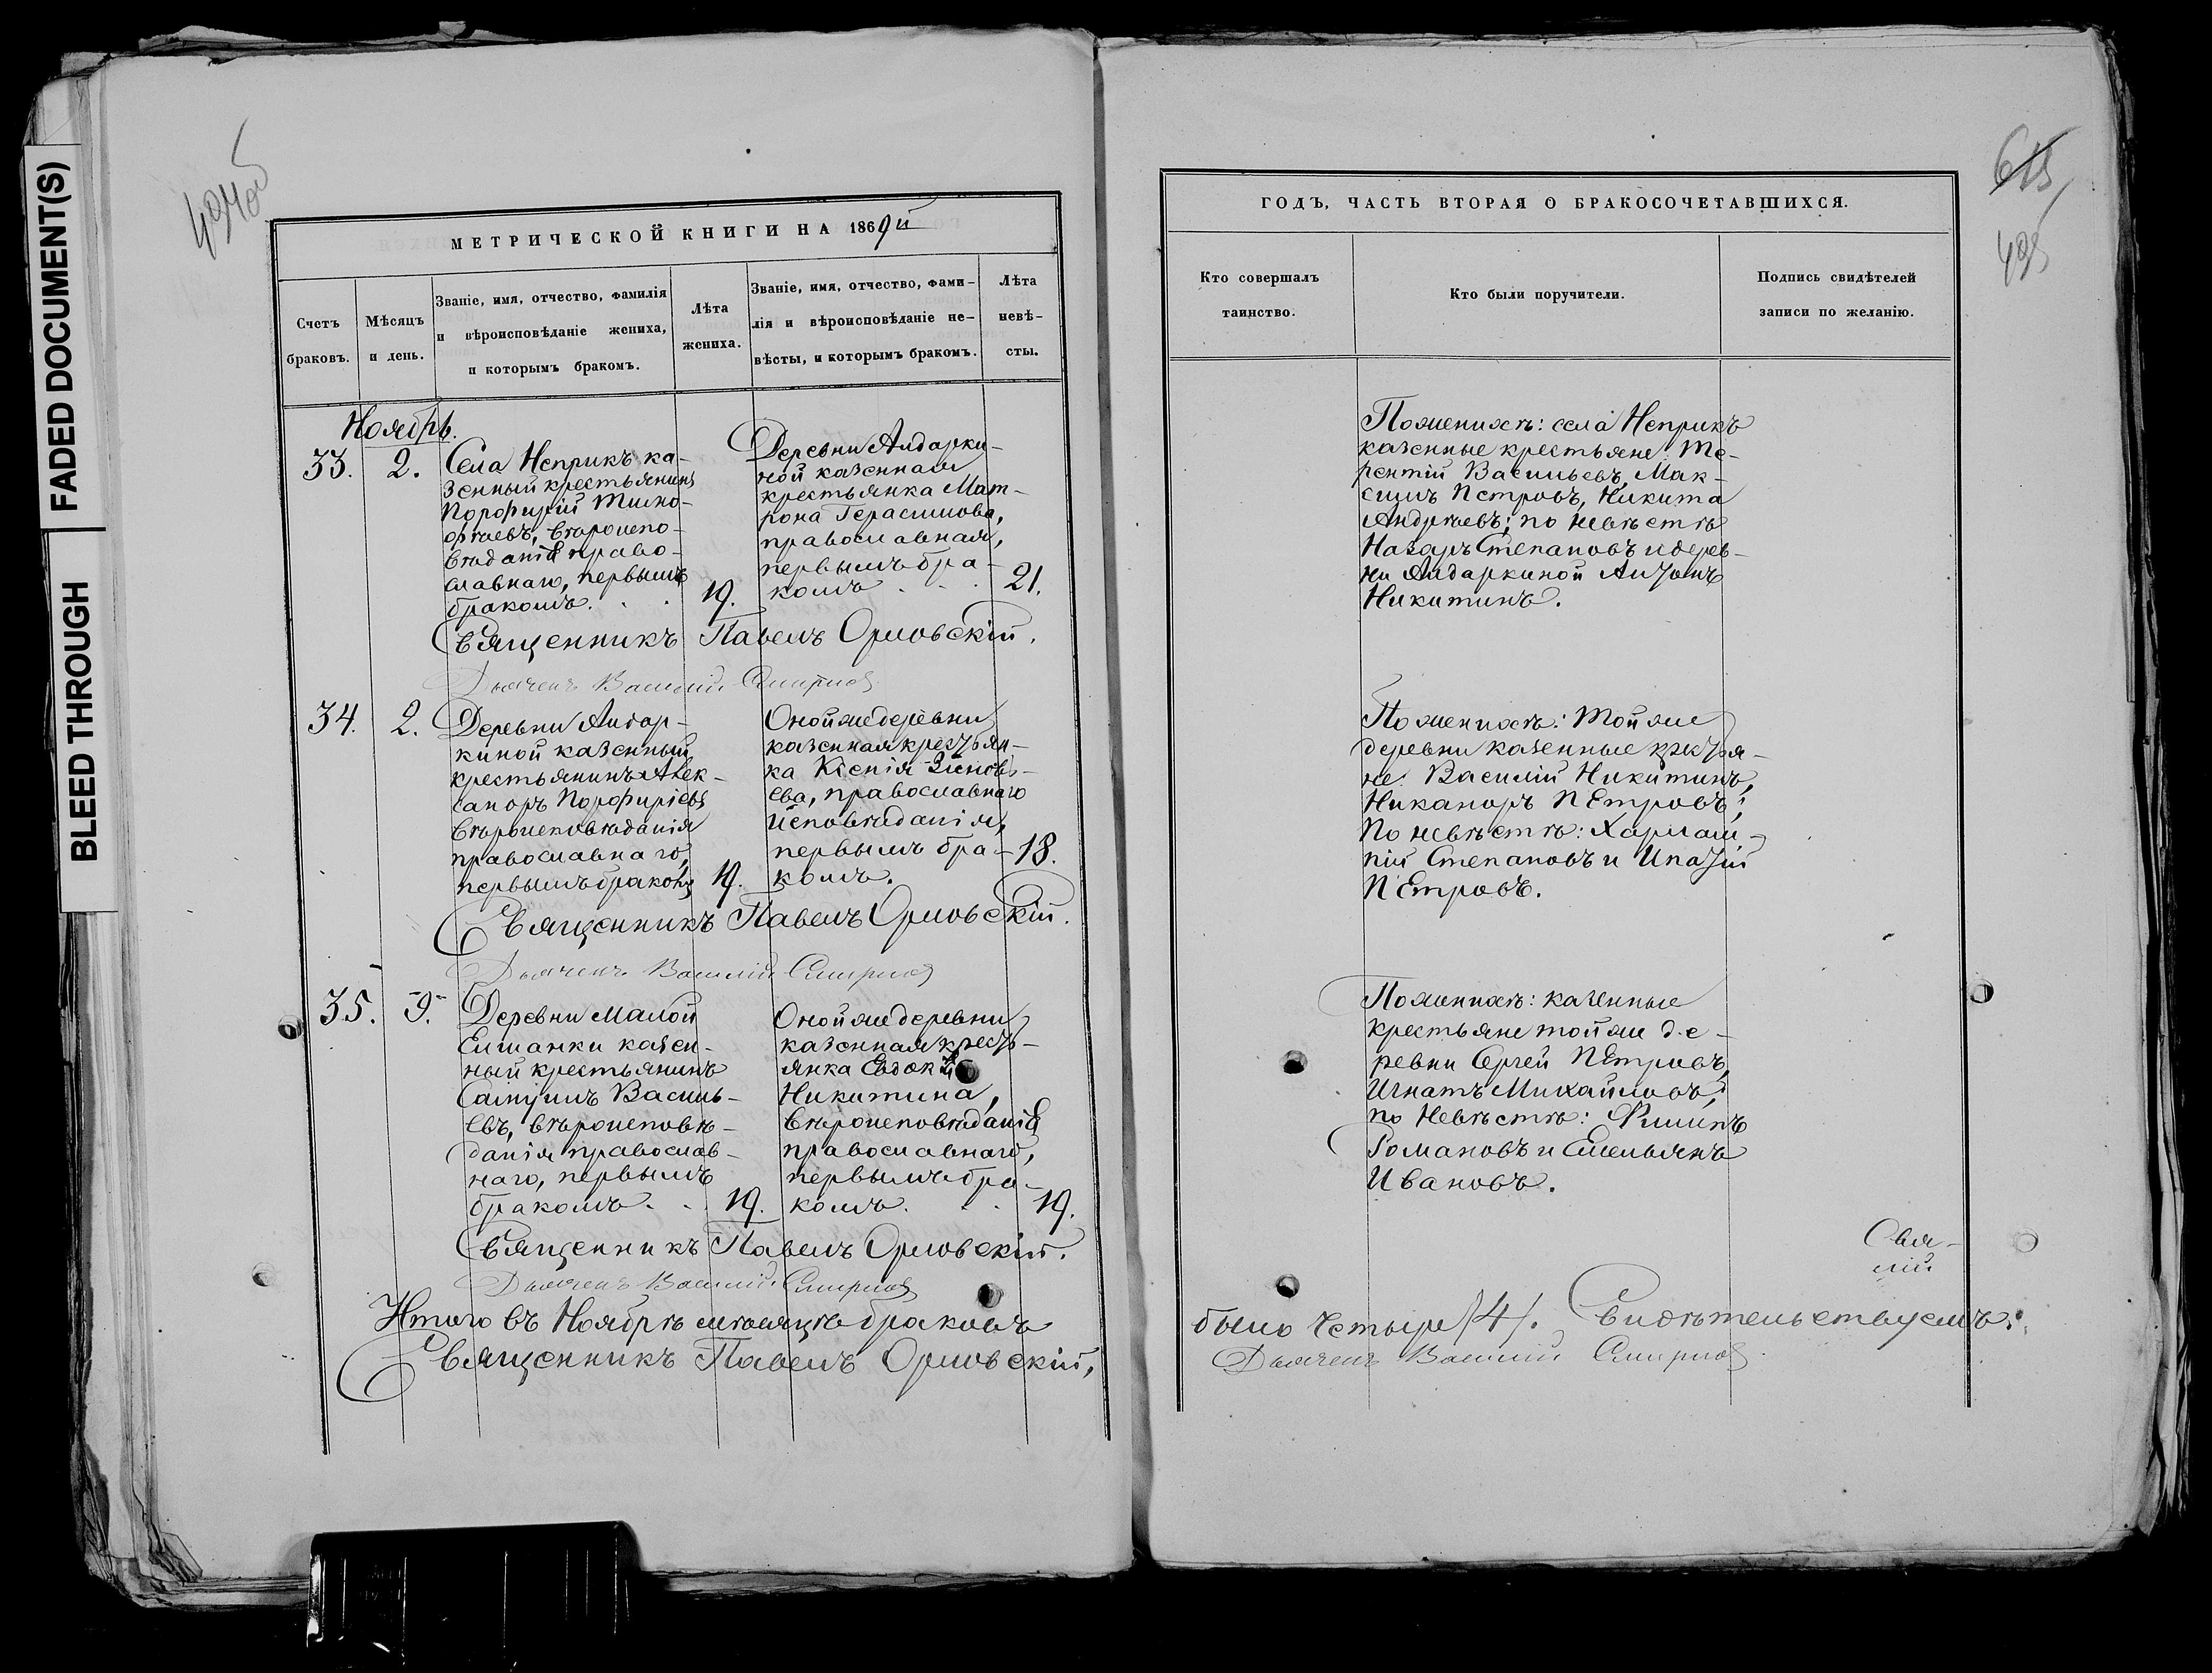 FADED DOCUMENT(S)
BLEED THROUGH
МЕТРИЧЕСКОЙ КНИГИ НА 1869й
Счетъ браковъ.
Мѣсяцъ и день.
Званіе, имя, отчество, фамилія
и вѣроисповѣданіе жениха,
и которымъ бракомъ.
Лѣта жениха.
Званіе, имя, отчество, фами-
лія и вѣроисповѣданіе не-
вѣсты, и которымъ бракомъ.
Лѣта невѣ-
сты.
Ноябрь.
33.
2.
Села Неприкъ ка-
зенный крестьянинъ
Порфирій Тимо-
фѣевъ, вѣроиспо-
вѣданія право-
славнаго, первымъ
бракомъ.
19.
Деревни Андарки-
ной казенная
крестьянка Мат-
рона Герасимова,
православная,
первымъ бра-
комъ
21.
Священникъ Павелъ Орловскій.
Дьячекъ Василій Смирнов
34.
2.
Деревни Андар-
киной казенный
крестьянинъ Алек-
сандръ Порфиріевъ
вѣроисповѣданія
православнаго,
первымъ бракомъ
19.
Оной же деревни
казенная крестьян-
ка Ксенія Зиновь-
ева, православнаго
исповѣданія,
первымъ бра-
комъ.
18.
Священникъ Павелъ Орловскій.
Дьячекъ Василій Смирнов
35.
9.
Деревни Малой
Елшанки казен-
ный крестьянинъ
Василь-
евъ, вѣроисповѣ-
данія православ-
наго, первымъ
бракомъ.
19.
Оной же деревни
казенная кресть-
янка
Никитина,
вѣроисповѣданія
православнаго,
первымъ бра-
комъ.
19.
Священникъ Павелъ Орловскій.
Дьячекъ Василій Смирнов
Итого въ Ноябрѣ мѣсяцѣ браковъ
Священникъ Павелъ Орловскій,
ГОДЪ, ЧАСТЬ ВТОРАЯ О БРАКОСОЧЕТАВШИХСЯ.
615
495
Кто совершалъ
таинство.
Кто были поручители.
Подпись свидѣтелей
записи по желанію.
По женихѣ: села Неприкъ
казенные крестьяне Те-
рентій Васильевъ, Мак-
симъ Петровъ, Никита
Андрѣевъ; по невѣстѣ
Назаръ Степановъ и дерев-
ни Андаркиной Антонъ
Никитинъ.
По женихѣ: той же
деревни казенные крестья-
не Василій Никитинъ,
Никаноръ Петровъ;
по невѣстѣ: Харлам-
пій Степановъ и Ипатій
Петровъ.
По женихѣ: казенные
крестьяне той же де-
ревни Сергей Петровъ,
Игнатъ Михайловъ;
по невѣстѣ: Филипъ
Романовъ и Емельянъ
Ивановъ.
было четыре /4/. Свидѣтельствуемъ:
Дьячекъ Василій Смирнов